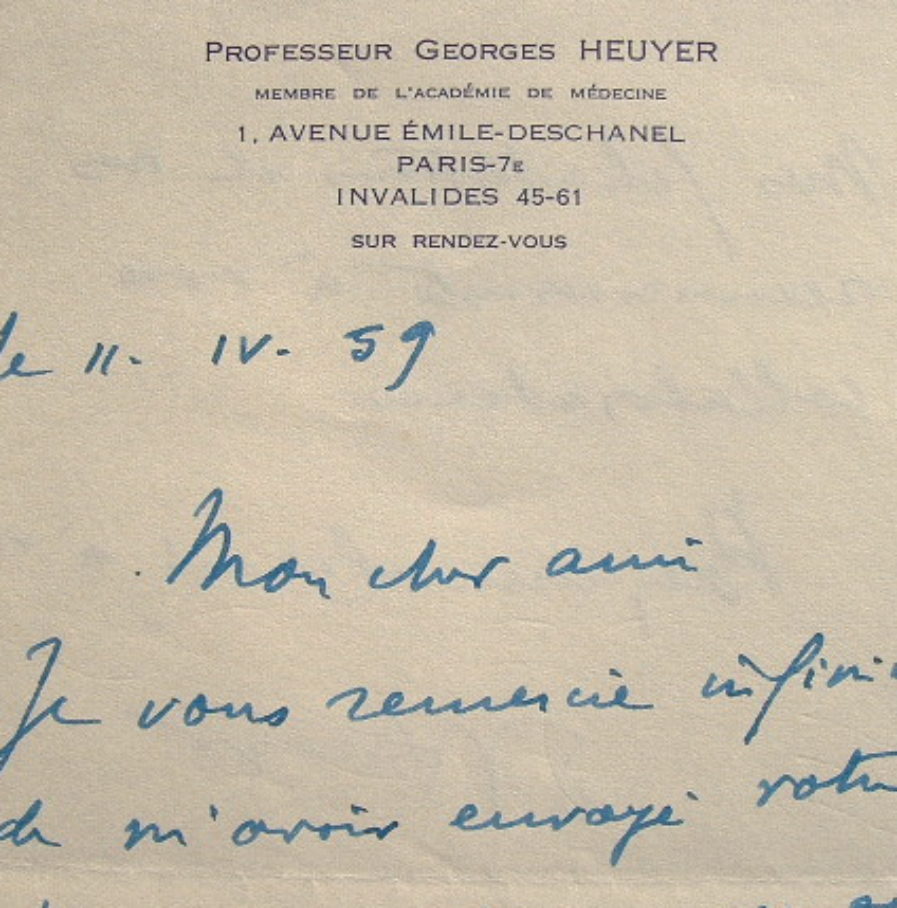 PROFESSEUR GEORGES HEUYER
MEMBRE DE L'ACADÉMIE DE MÉDECINE
1, AVENUE ÉMILE-DESCHANEL
PARIS-7E
INVALIDES 45-61
SUR RENDEZ-VOUS
le 11. IV. 59
Mon cher ami
Je vous remercie infini
de m'avoir envoyé votre